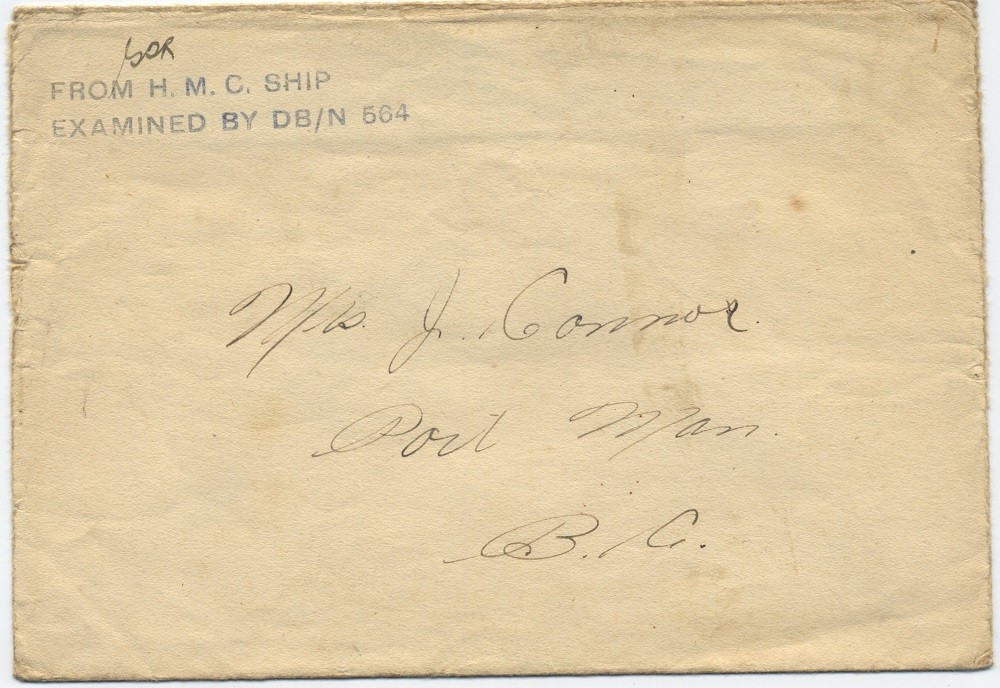 FROM H. M. C. SHIP
EXAMINED BY DB/N 564
Mrs. J. Connor.
Port Man.
B.C.